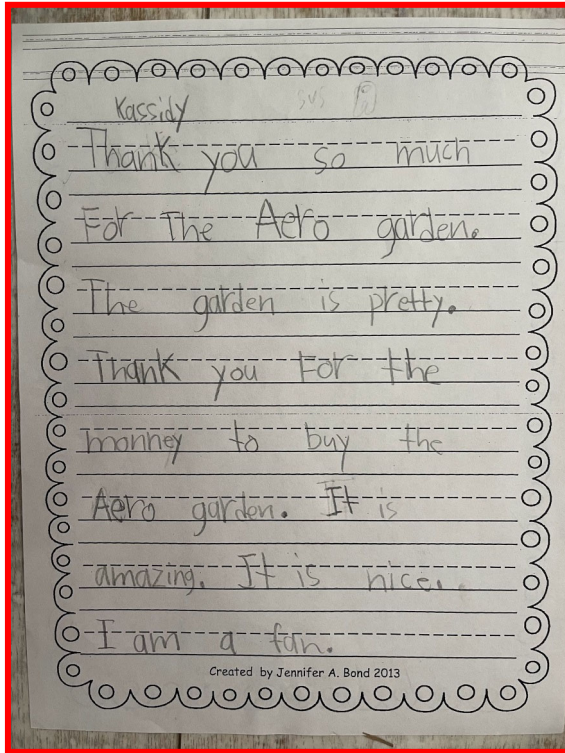 Kassidy
Thank you so much
For The Aero garden.
The garden is pretty.
Thank you For the
monney to buy the
Aero garden. It is
amazing. It is nice.
I am a fan.
Created by Jennifer A. Bond 2013